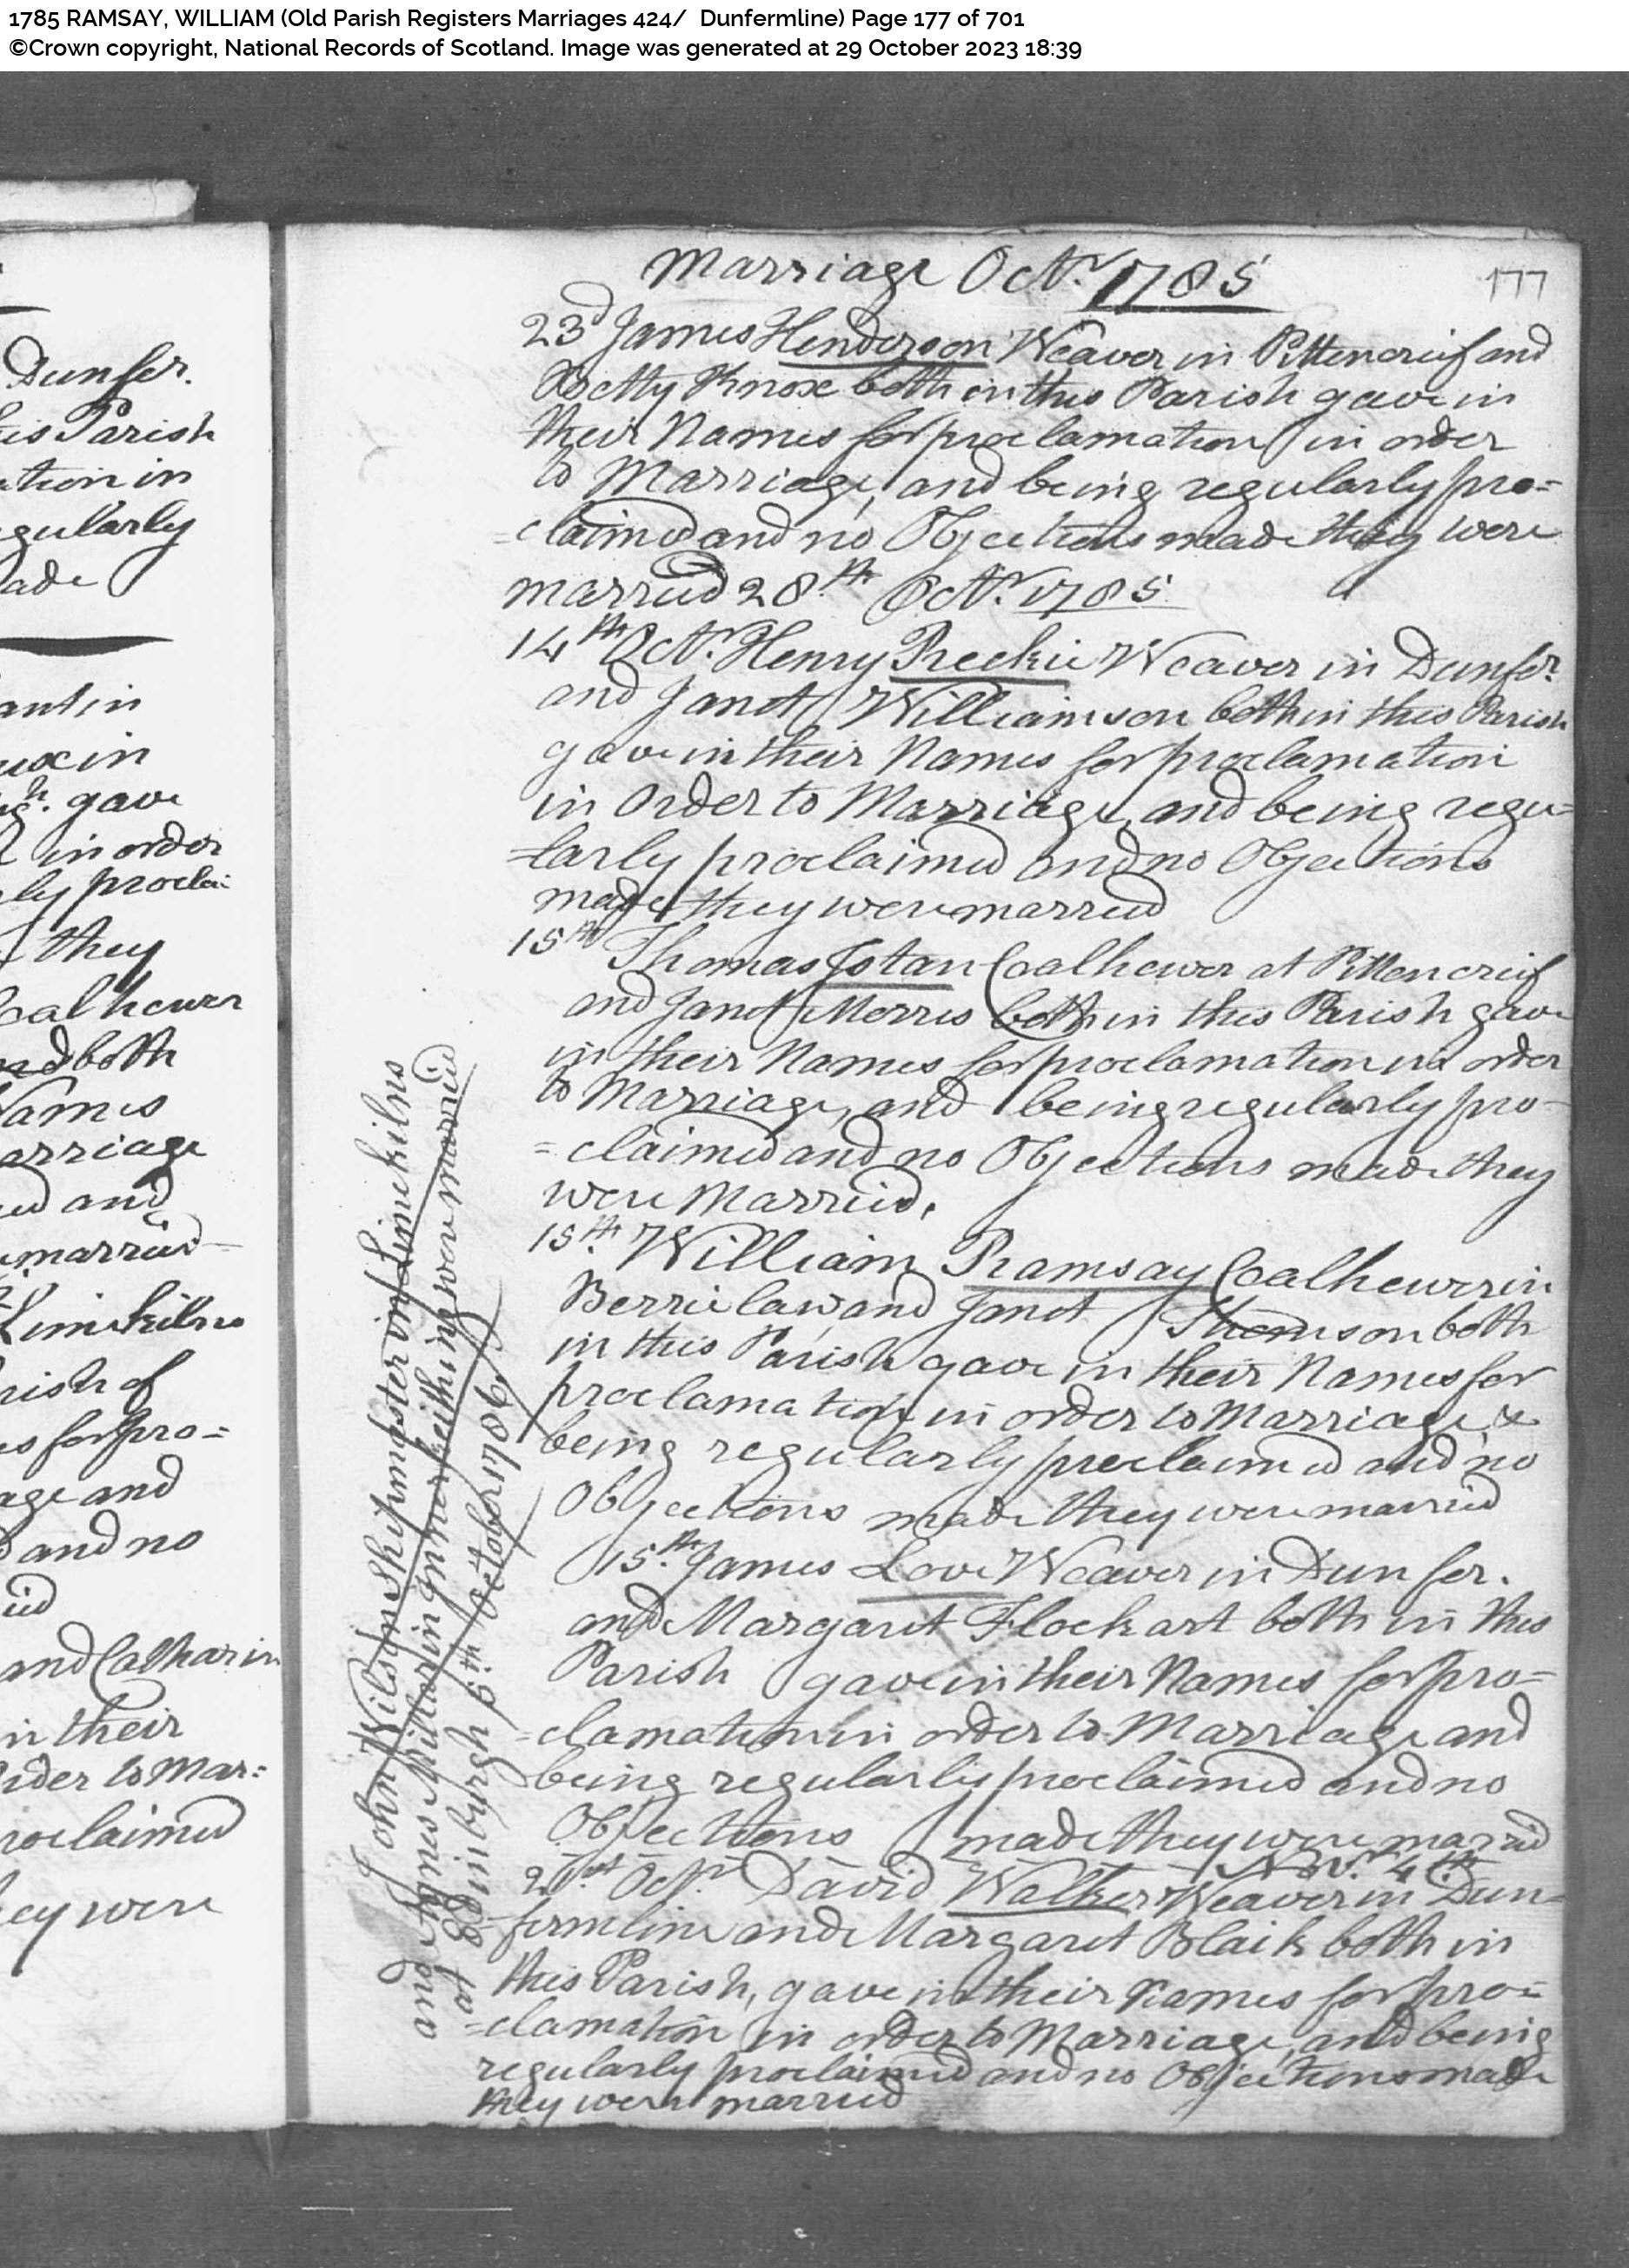 1785 RAMSAY, WILLIAM (Old Parish Registers Marriages 424/ Dunfermline) Page 177 of 701
©Crown copyright, National Records of Scotland. Image was generated at 29 October 2023 18:39
Dunfer.
is Parish
ation in
egularly
ade
ant in
ux in
gave
in order
ly proclai-
they
Coalhewer
and both
Names
arriage
ed and
married
Limekilns
rish of
s for pro=
age and
and no
ied
and Catharin
in their
rder to Mar=
roclaimed
hey were
Marriage Octr. 1785
177
23d James Henderson Weaver in Pittencrief and
Betty Knox both in this Parish gave in
their Names for proclamation in order
to Marriage, and being regularly pro=
=claimed and no Objections made they were
married 28th. Octr. 1785
14th Octr. Henry Reekie Weaver in Dunfer.
and Janet Williamson both in this Parish
gave in their Names for proclamation
in Order to Marriage, and being regu=
=larly proclaimed and no Objections
made they were married
15th Thomas Istan Coalhewer at Pittencrief
and Janet Morris both in this Parish gave
in their Names for proclamation in order
to Marriage, and being regularly pro-
=claimed and no Objections made they
were Married.
15th. William Ramsay Coalhewer in
Berrielaw and Janet Thomson both
in this Parish gave in their Names for
proclamation in order to Marriage, &
being regularly proclaimed and no
Objections made they were married
15th. James Love Weaver in Dunfer.
and Margaret Flockart both in this
Parish gave in their Names for pro=
=clamation in order to Marriage and
being regularly proclaimed and no
Objections made they were married
Novr. 4th.
21st Octr. David Walker Weaver in Dun=
=fermline and Margaret Blaik both in
this Parish, gave in their Names for pro=
=clamation in order to Marriage, and being
regularly proclaimed and no Objections made
they were married
John Wilson Shipmaster in Limekilns
and Agnes Millar in Innerkeithing were married
at Edinburgh 5th October 1786